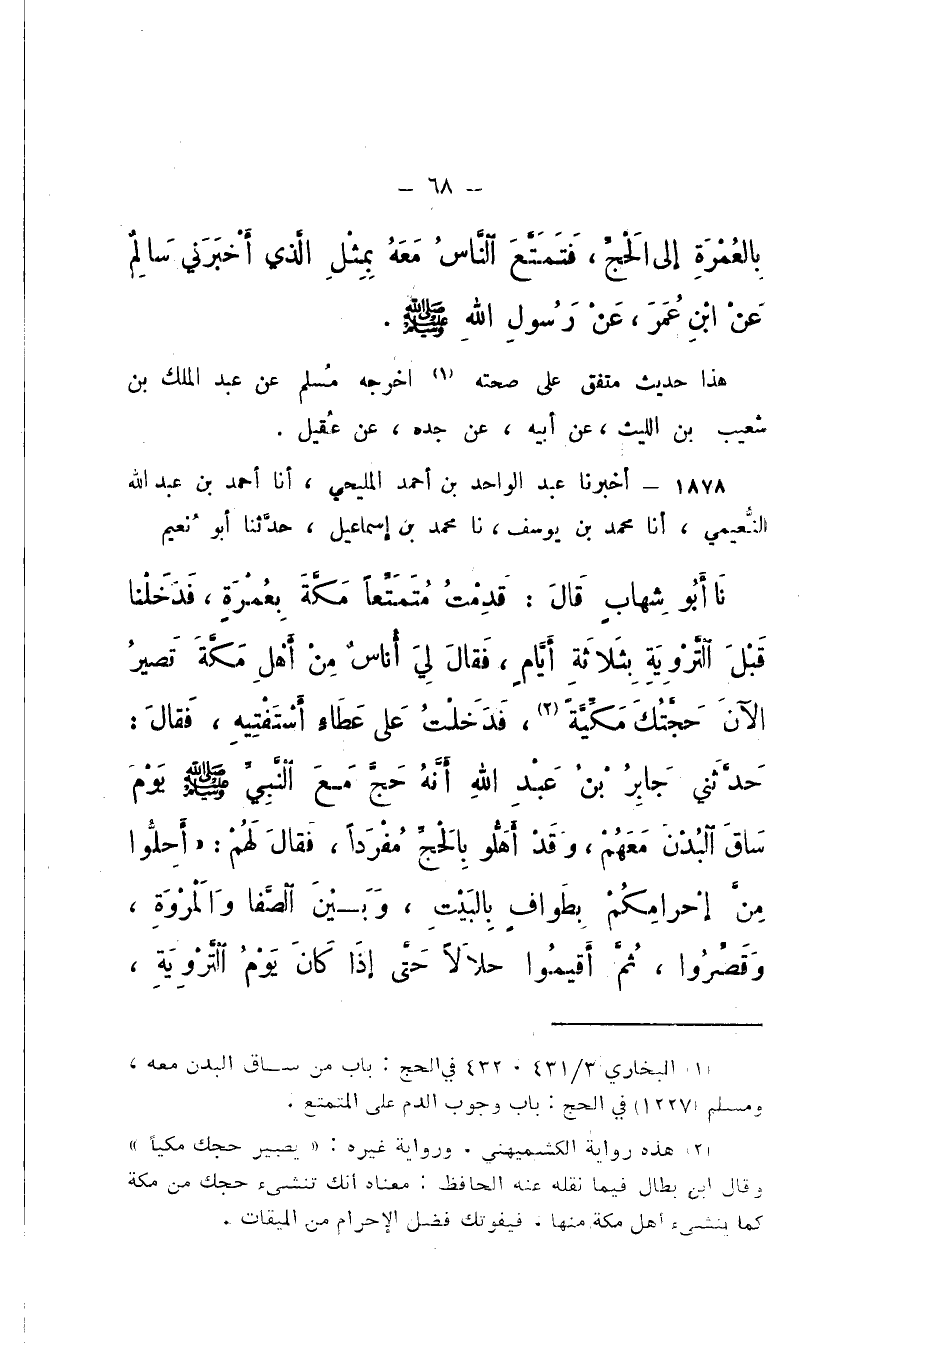 — ٦٨ —
بِالعُمْرَةِ إلى الَحْجِّ ، فَتَمَتَّعَ ٱلنَّاسُ مَعَهُ بِمِثْلِ الَّذي أَخبَرَني سَالِمٌ
عَنْ ابْنِ عُمَرَ ، عَنْ رَسُولِ اللهِ ﷺ .
هذا حديث متفق على صحته (١) اخرجه مُسلم عن عبد الملك بن
شعيب بن الليث ، عن أبيه ، عن جده ، عن عُقيل .
١٨٧٨ – أخبرنا عبد الواحد بن أحمد المليحي ، أنا أحمد بن عبد الله
النُّعيمي ، أنا محمد بن يوسف ، نا محمد بن إسماعيل ، حدَّثنا أبو نُعيم
نَا أَبُو شِهابٍ قَالَ : قَدِمْتُ مُتَمَتِّعاً مَكَّةَ بِعُمْرَةٍ ، فَدَخَلْنا
قَبْلَ ٱلتَّرْوِيَةِ بِثَلاثَةِ أَيَّامٍ ، فَقالَ لِيَ أُناسٌ مِنْ أَهْلِ مَكَّةَ تَصيرُ
الآنَ حَجَّتُكَ مَكِّيَّةً (٢) ، فَدَخلْتُ عَلى عَطَاءِ أَسْتَفْتِيهِ ، فَقالَ :
حَدَّثَني جَابِرُ بْنُ عَبْدِ اللهِ أَنَّهُ حَجَّ مَعَ ٱلنَّبِيِّ ﷺ يَوْمَ
سَاقَ ٱلبُدْنَ مَعَهُمْ ، وَقَدْ أَهَلُّو بِالَحْجِّ مُفْرَداً ، فَقالَ لَهُمْ : « أَحِلُّوا
مِنَّ إحْرامِكُمْ بِطَوافٍ بِالبَيْتِ ، وَبَـيْنَ ٱلصَّفا وَالَمْرْوَةِ ،
وَقَصِّرُوا ، ثُمَّ أَقيمُوا حلالَاً حَتَّى إذَا كَانَ يَوْمُ ٱلتَّرْوِيَةِ ،
(١) البخاري ٤٣١/٣ . ٤٣٢ في الحج : باب من ساق البدن معه ،
ومسلم (١٢٢٧) في الحج : باب وجوب الدم على المتمتع .
(٢) هذه رواية الكشميهني . ورواية غيره : « يصير حجك مكياً »
وقال ابن بطال فيما نقله عنه الحافظ : معناه أنك تنشىء حجك من مكة
كما ينشىء أهل مكة منها . فيفوتك فضل الإحرام من الميقات .